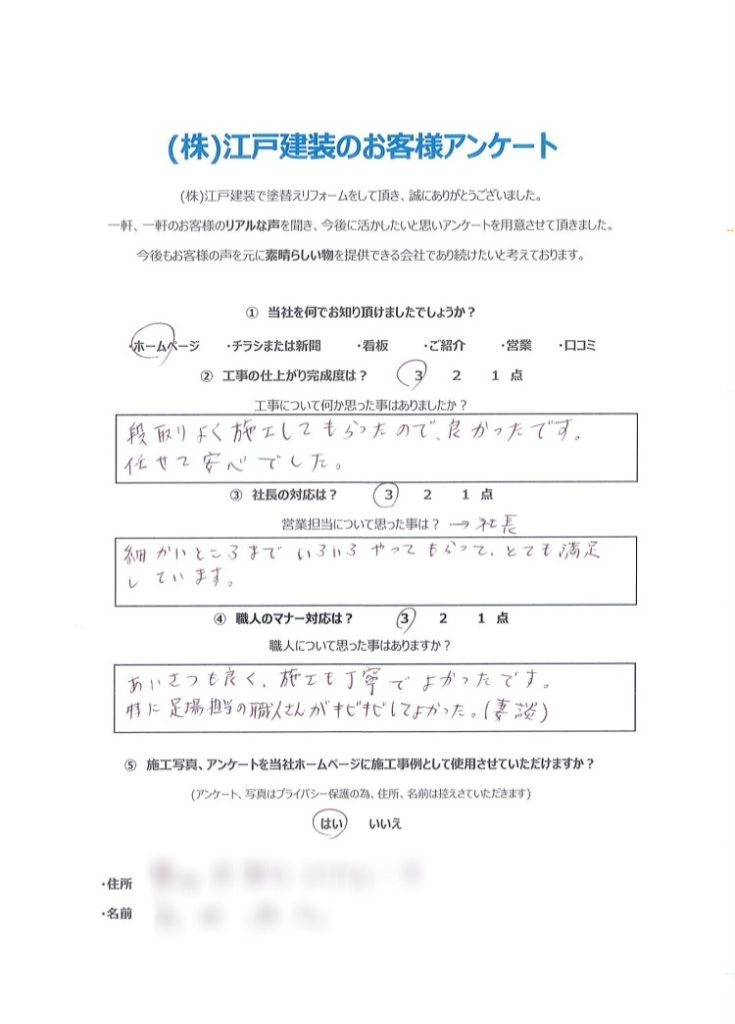 (株)江戸建装のお客様アンケート
(株)江戸建装で塗替えリフォームをして頂き、誠にありがとうございました。
一軒、一軒のお客様のリアルな声を聞き、今後に活かしたいと思いアンケートを用意させて頂きました。
今後もお客様の声を元に素晴らしい物を提供できる会社であり続けたいと考えております。
① 当社を何でお知り頂けましたでしょうか？
・ホームページ ・チラシまたは新聞 ・看板 ・ご紹介 ・営業 ・口コミ
② 工事の仕上がり完成度は？ 3 2 1 点
工事について何か思った事はありましたか？
段取りよく施工してもらったので、良かったです。
任せて安心でした。
③ 社長の対応は？ 3 2 1 点
営業担当について思った事は？ →社長
細かいところまでいろいろやってもらって、とても満足
しています。
④ 職人のマナー対応は？ 3 2 1 点
職人について思った事はありますか？
あいさつも良く、施工も丁寧でよかったです。
特に足場担当の職人さんがキビキビしてよかった。(妻談)
⑤ 施工写真、アンケートを当社ホームページに施工事例として使用させていただけますか？
(アンケート、写真はプライバシー保護の為、住所、名前は控えさていただきます)
はい いいえ
・住所
・名前